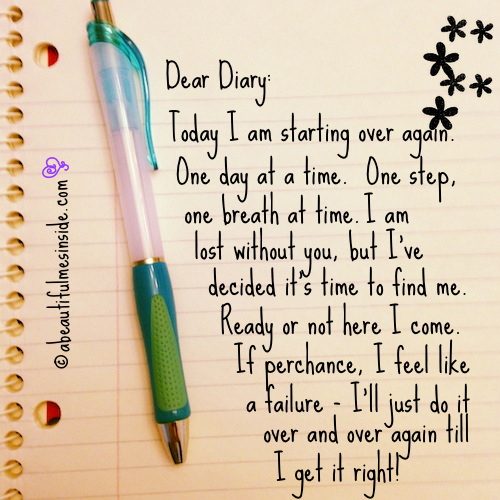 Dear Diary:
Today I am starting over again.
One day at a time. One step,
one breath at time. I am
lost without you, but I've
decided it's time to find me.
Ready or not here I come.
If perchance, I feel like
a failure - I'll just do it
over and over again till
I get it right!
© abeautifulmesinside.com